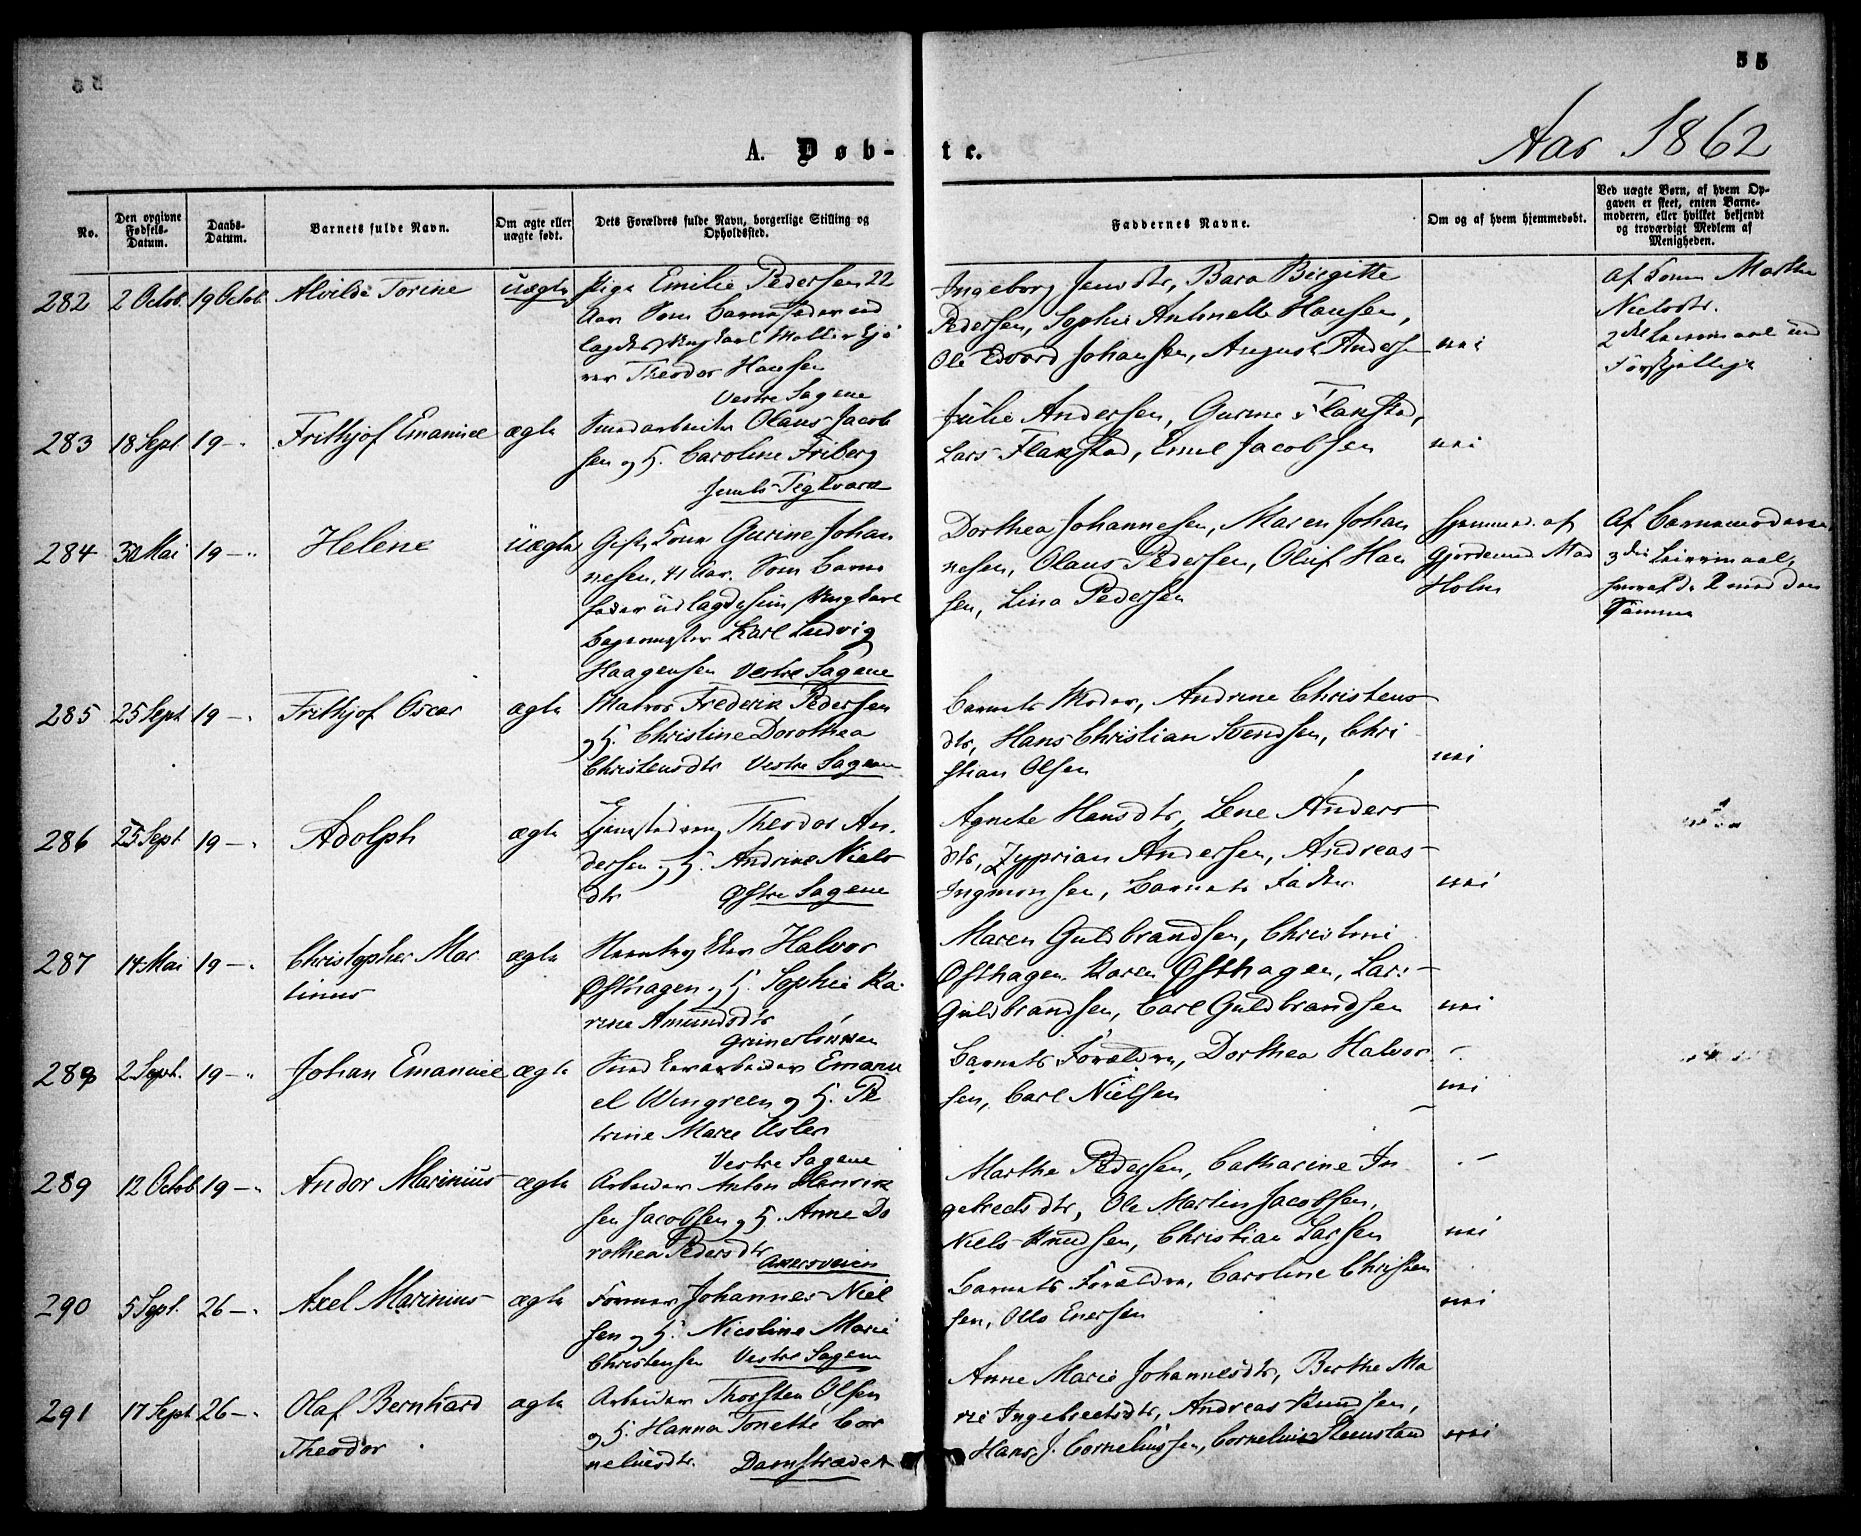 55
Aar 1862
A. Døb-
te.
No.
Den opgivne
Fødsels-
Datum.
Daabs-
Datum.
Barnets fulde Navn.
Om ægte eller
uægte født.
Dets Forældres fulde Navn, borgerlige Stilling og
Opholdssted.
Faddernes Navne.
Om og af hvem hjemmedøbt.
Ved uægte Børn, af hvem Op-
gaven er skeet, enten Barne-
moderen, eller hvilket bekjendt
og troværdigt Medlem af
Menigheden.
282 2 Octob. 19 Octob.
Alvilde Torine
uægte
Pige Emilie Pedersen 22
Aar Som Barnefader ud
lagdes Ungkarl
ver Theodor Hansen
Vestre Sagene
Ingeborg Jensdtr, Bara Birgitte
Pedersen, Sophie Antonette Hansen,
Ole Edvard Johansen, August Andersen
nei
af Konen Marthe
Nielsdtr.
2det Leiermaal med
Forskjellige
283 18 Sept 19 –
Frithjof Emanuel
ægte
Smedarbeider Olaus Jacob
sen og H. Caroline Friberg
Teglværk
Julie Andersen, Gurine Flakstad,
Lars Flakstad, Emil Jacobsen
nei
284 30 Mai 19 –
Helene
uægte
Gift Kone Gurine Johan
nesen, 41 Aar. Som Barne
fader udlagdes Ungkarl
Bagermester Karl Ludvig
Haagensen Vestre Sagene
Dorthea Johannesen, Maren Johan
nesen, Olaus Pedersen, Oluf Han
sen, Lina Pedersen
Hjemmed. af
Gjordemod. Mad
Holm
Af Barnemoderen
3die Leiermaal,
hvoraf de 2 med den
Samme
285 25 Sept 19 –
Frithjof Oscar
ægte
Matros Frederik Pedersen
og H. Christine Dorothea
Christensdtr Vestre Sagene
Barnets Moder, Andrine Christens
dtr, Hans Christian Svendsen, Chri
stian Olsen
nei
286 25 Sept 19 –
Adolph
ægte
Theodor An
dersen og H. Andrine Niels
dtr Østre Sagene
Agnete Hansdtr, Lene Anders
dtr, Zyprian Andersen, Andreas
Ingmonsen, Barnets Fader
nei
287 14 Mai 19 –
Christopher Mar
tinus
ægte
Halvor
Østhagen og H. Sophie Ka
rine Amundsdtr
Grünerløkken
Maren Guldbrandsen, Christine
Østhagen, Karen Østhagen, Lars
Guldbrandsen, Carl Guldbrandsen
nei
288 2 Sept. 19 –
Johan Emanuel
ægte
Emanu
el Wengreen og H. Pe
trine Marie Usler
Vestre Sagene
Barnets Forældre, Dorthea Halvor
sen, Carl Nielsen
nei
289 12 Octob 19 –
Andor Marinius
ægte
Arbeider Anton Henrik
sen Jacobsen og H. Anne Do
rothea Pedersdtr
Akersveien
Marthe Pedersen, Catharine In
gebretsdtr, Ole Martin Jacobsen,
Niels Knudsen, Christian Larsen
nei
290 5 Sept. 26 –
Axel Marinius
ægte
Former Johannes Niel
sen og H. Nicoline Marie
Christensen Vestre Sagene
Barnets Forældre, Caroline Christen
sen, Otto Enersen
nei
291 17 Sept 26 –
Olaf Bernhard
Theodor
ægte
Arbeider Thorsten Olsen
og H. Hanna Tonette Cor
neliusdtr. Damstrædet
Anne Marie Johannesdtr, Berthe Ma
rie Ingebretsdtr, Andreas Knudsen,
Hans J. Corneliussen, Cornelius Stenstad
nei